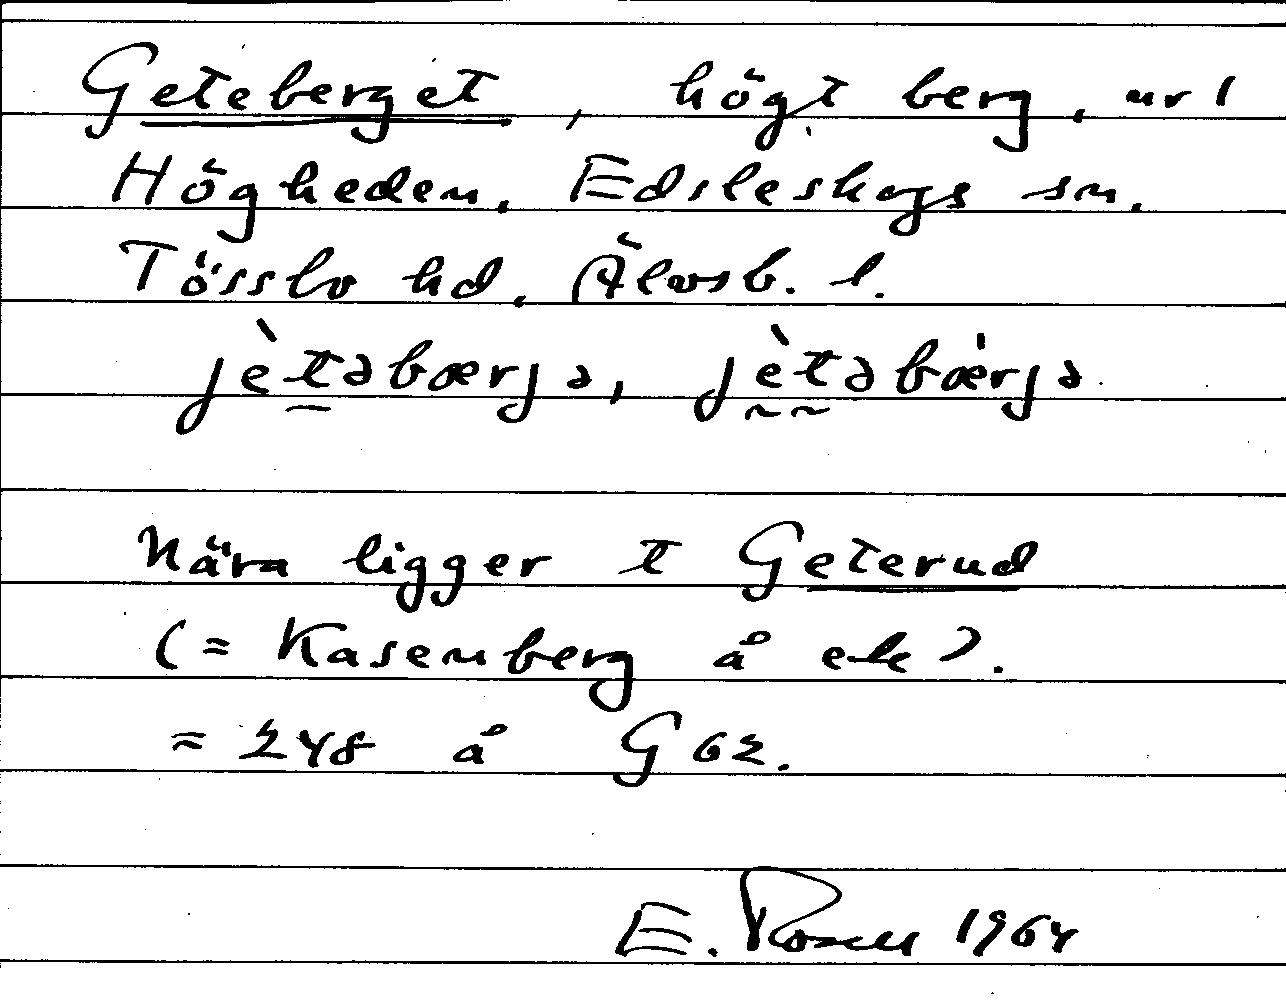 Geteberget, högt berg, nr 1
Högheden. Edsleskogs sn.
Tössbo hd. Älvsb. l.
jètəbærjə, jètəbæ̀rjə
Nära ligger t Geterud
(= Kasenberg å ek).
= 248 å G 62.
E. Rosell 1964